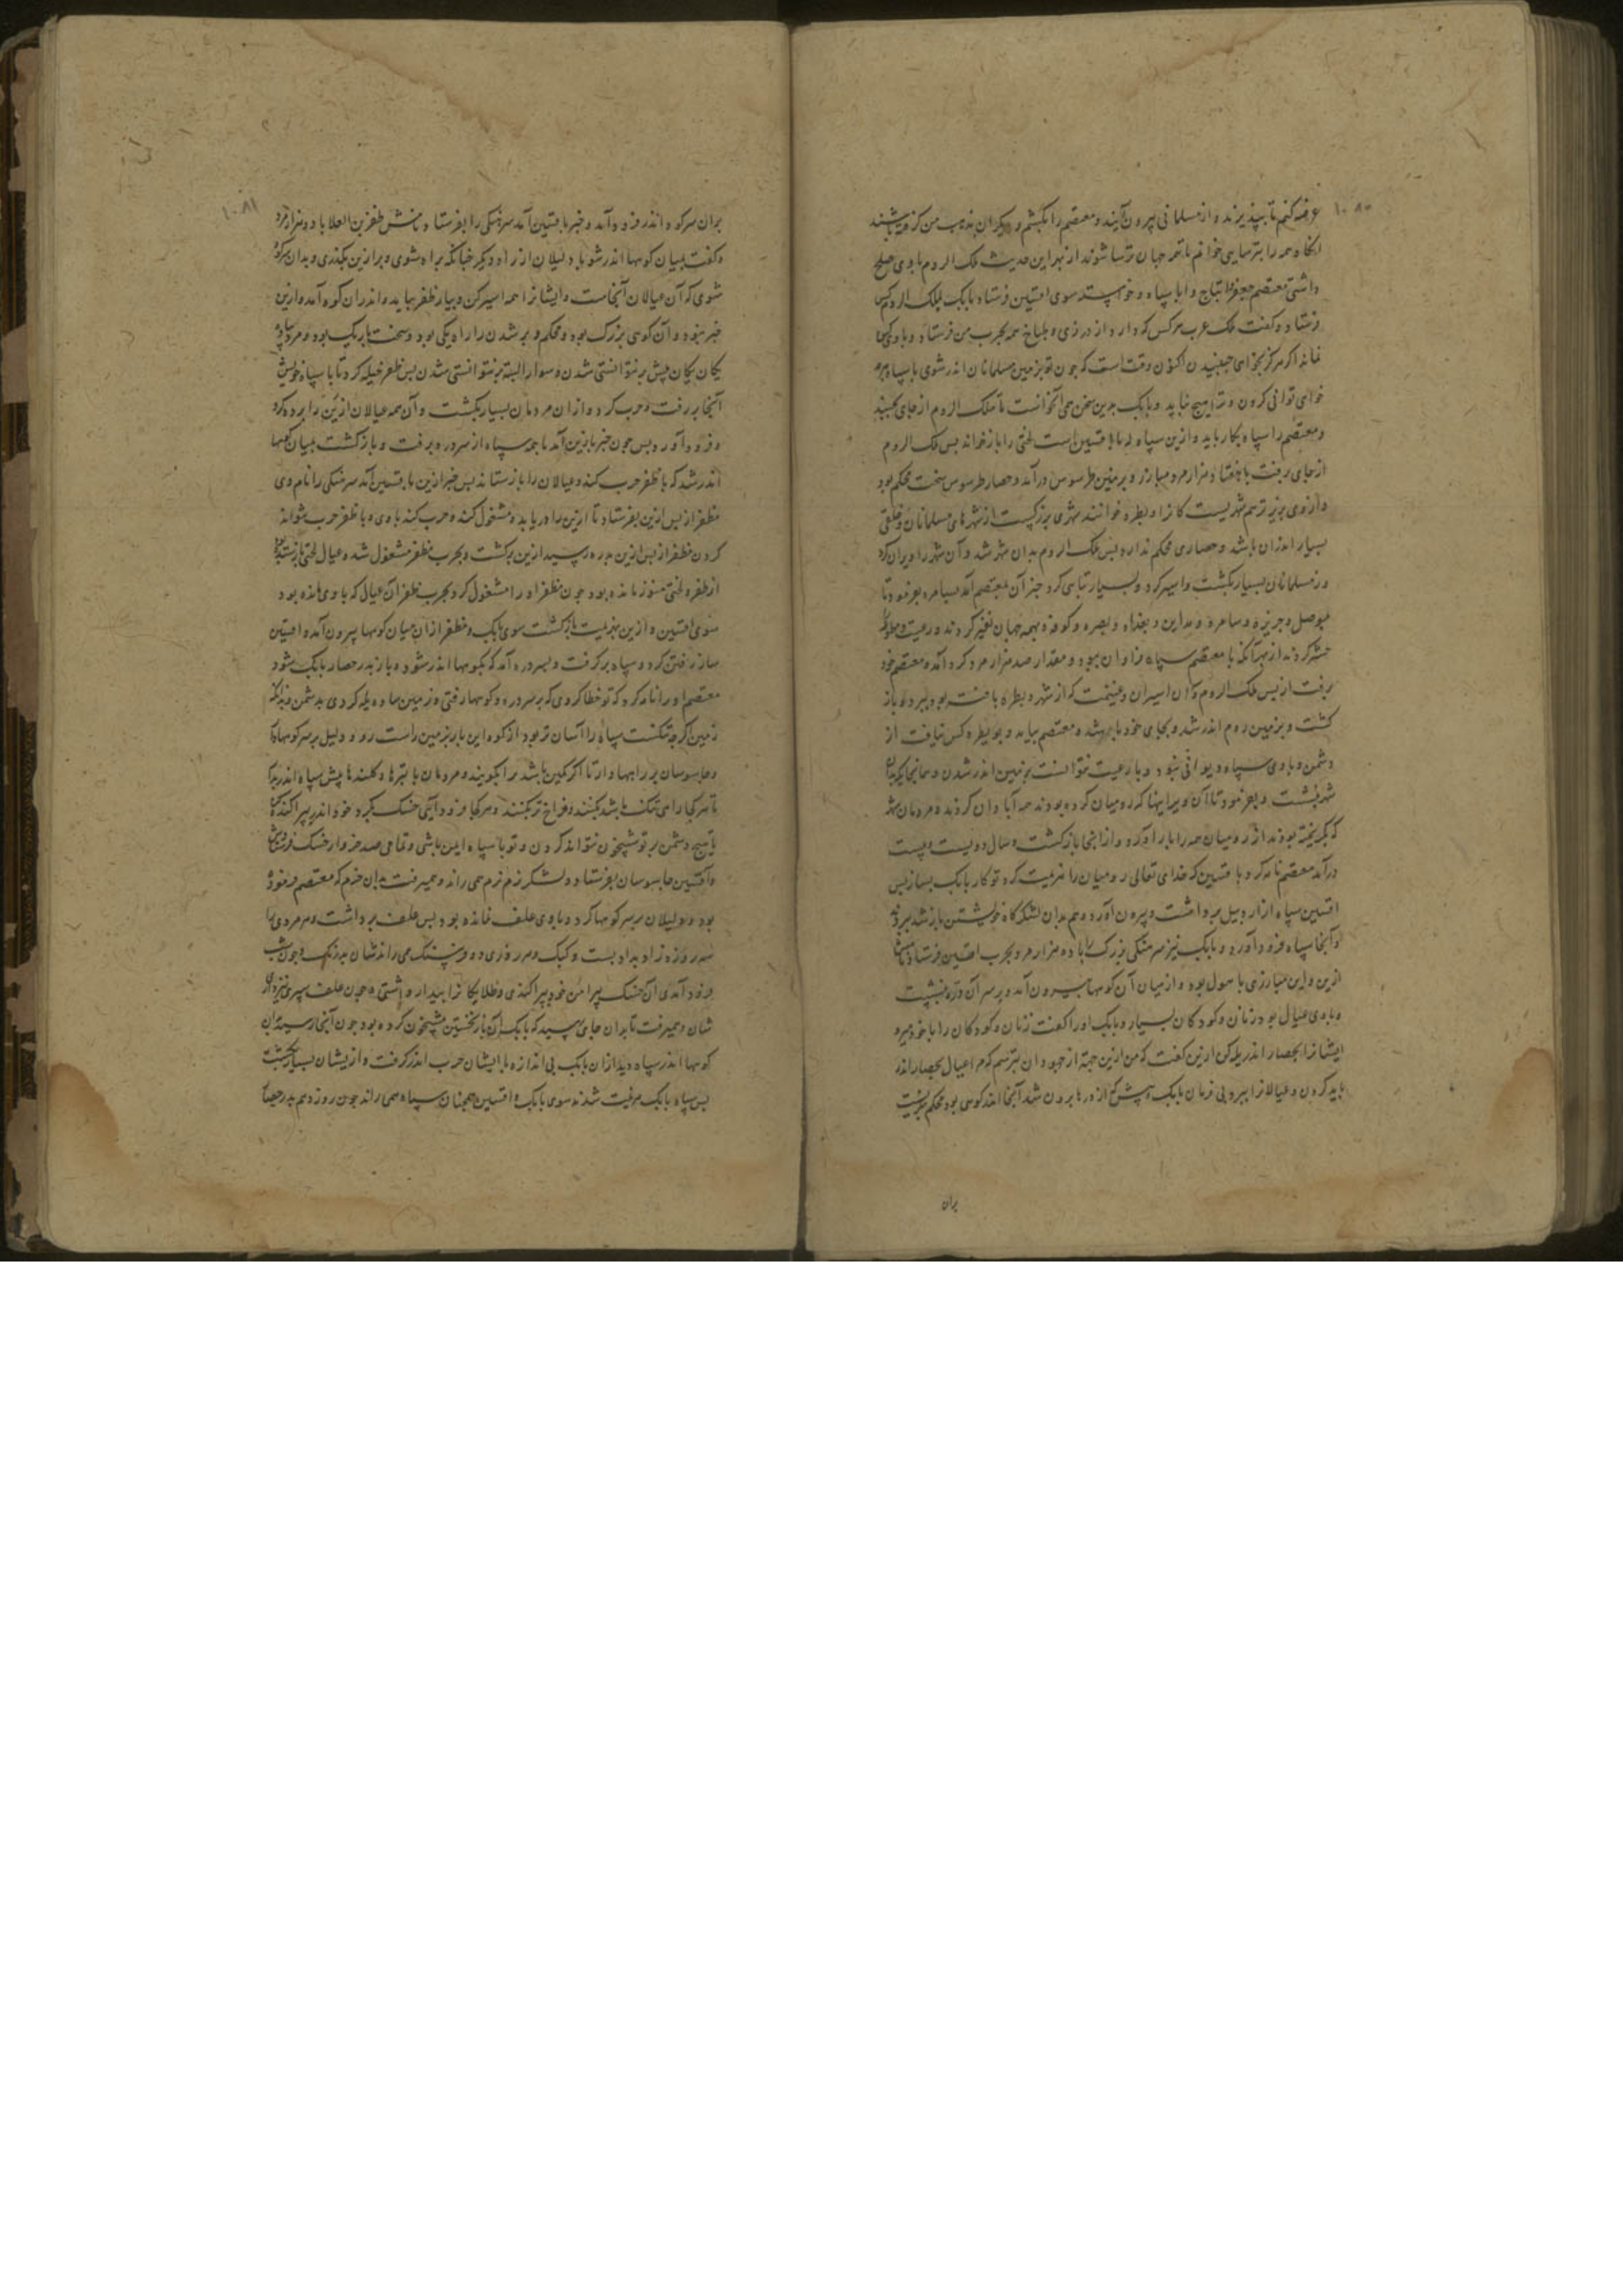 ۱۰۸۰
عرضه کنم تا بپذیرند و از مسلمانی بیرون آیند و معتصم را بکشم و دیکران بمذهب من کرویده باشند
آنکاه همه را بترسایی خوانم تا همه جهان ترسا شوند از بهر این حدیث ملک الروم با وی صلح
داشتی معتصم جعفر الخیاط را با سپاه و خواسته سوی افشین فرستاد بابک بملک الروم کس
فرستاد و کفت ملک عرب هر کس که دارد از درزی و طباخ همه بحرب من فرستاد و با وی کس
نمانده اکر هرکز بخواهی جنبیدن اکنون وقت است که چون تو بزمین مسلمانان اندر شوی با سپاه هر چه
خواهی توانی کردن و ترا هیچ نباید و بابک بدین سخن همی آنخواست تا ملک الروم از جای بجنبد
و معتصم را سپاه بکار باید و ازین سپاه که با افشین است لختی را باز خواند پس ملک الروم
از جای برفت با هفتاد هزار مرد مبارز و بزمین طرسوس در آمد و حصار طرسوس سخت محکم بود
و از وی برتر هم شهریست کانرا و بطره خوانند شهری بزرکست از شهرهای مسلمانان و خلقی
بسیار اندران باشد و حصاری محکم ندارد پس ملک الروم بدان شهر شد و آن شهر را ویران کرد
و مسلمانان بسیار بکشت و اسیر کرد و بسیار تباهی کرد خبر آن بمعتصم آمد بسامره بفرمود تا
بموصل و جزیره و سامره و مداین و بغداد و بصره و کوفه و بهمه جهان نفیر کردند و رعیت و مطوعه
حشر کردند از بهر آنکه با معتصم سپاه فراوان نبود و مقدار صد هزار مرد کرد آمد و معتصم خود
برفت از پس ملک الروم و آن اسیران و غنیمت که از شهر و بطره یافته بود ببرد و باز
کشت و بزمین روم اندر شد و بجای خود باز شد و معتصم بیامد و بوبطره کس نیافت از
دشمن و با وی سپاه دیوانی نبود و با رعیت نتوانست بزمین اندر شدن و همانجا یکچند بدان
شهر بنشست و بفرمود تا آن ویرانیها که رومیان کرده بودند همه آبادان کردند و مردمان شهر
که بکریخته بودند از رومیان همه را باز آورد و از آنجا باز کشت و سال دویست و بیست
در آمد معتصم نامه کرد با افشین که خدای تعالی رومیان را هزیمت کرد تو کار بابک بساز پس
افشین سپاه از اردبیل برداشت و بیرون آورد و هم بدان لشکرکاه خویشتن باز شد ببرزند
و آنجا سپاه فرود آورد و بابک نیز سرهنکی بزرک را با ده هزار مرد بحرب افشین فرستاد نامش
آذین و این مبارزی با هول بود و از میان آن کوهها بیرون آمد و بر سر آن دره بنشست
و با وی عیال بود زنان و کودکان بسیار و بابک او را کفت زنان و کودکان را با خود مبر و
ایشانرا بحصار اندر یله کن آذین کفت که من ازین جهودان بترسم که مرا عیال بحصار اندر
باید کردن و عیالانرا ببرد بی فرمان بابک پیش از آنکه از درها برون شد آنجا اندر کوهی بود محکم
بران
۱۰۸۱
بران سر کوه اندر فرود آمد و خبر بافشین آمد سرهنکی را بفرستاد نامش ظفر بن العلا با دو هزار مرد
و کفت بمیان کوهها اندر شو با دلیلان از راه دیکر چنانکه براه شوی و بر آذین بکذری و بدان سر کوه
شوی که آن عیالان آنجاست و ایشانرا همه اسیر کن و بیار ظفر بیامد و اندران کوه آمد و آذین
خبر نبود و آن کوهی بزرک بود و محکم و بر شدن را راه یکی بود و سخت باریک بود و مرد پیاده
یکان یکان بیش بر نتوانستی شدن و سوار البته بر نتوانستی شدن پس ظفر حیله کرد تا با سپاه خویش
آنجا بر رفت و حرب کرد و از ان مردمان بسیار بکشت و آن همه عیالان آذین را برده کرد
و فرود آورد پس چون خبر بآذین آمد با همه سپاه از سر دره برفت و باز کشت بمیان کوهها
اندر شد که با ظفر حرب کند و عیالان را باز ستاند پس خبر آذین بافشین آمد سرهنکی را نام وی
مظفر از پس آذین بفرستاد تا آذین را دریابد و مشغول کند و حرب کند با وی و با ظفر حرب نتواند
کردن مظفر از پس آذین بدره رسید آذین برکشت و بحرب مظفر مشغول شد و عیال لختی باز ستده بود
از ظفر و لختی هنوز مانده بود چون مظفر او را مشغول کرد بحرب ظفر آن عیال که با وی مانده بود
سوی افشین و آذین بهزیمت باز کشت سوی بابک و مظفر از ان میان کوهها بیرون آمد و افشین
ساز رفتن کرد و سپاه بر کرفت و بسر دره آمد که بکوهها اندر شود و باز بدر حصار بابک شود
معتصم او را نامه کرد که تو خطا کردی که بر سر دره و کوهها رفتی و زمین هامون یله کردی بدشمن و بدانکه
زمین اکر چه تنکست سپاه را آسان تر بود از کوه این بار بزمین راست رو و دلیل بر سر کوهها
و جاسوسان بر راهها دار تا اکر کمین باشد ترا بکویند و مردمان با تبرها و کلندها پیش سپاه اندر بدار
تا هر کجا راهی تنک باشد بکنند و فراخ تر بکنند و هر کجا فرود آیی خسک بکرد خود اندر پراکنده کن
تا هیچ دشمن بر تو شبیخون نتواند کردن و تو با سپاه ایمن باشی و تمامی صد خروار خسک فرستادمش
و افشین جاسوسان بفرستاد و لشکر نرم نرم همی راند و همیرفت بدان حزم که معتصم فرموده
بود و دلیلان بر سر کوهها کرد و با وی علف نمانده بود پس علف برداشت و هر مردی را
سه روزه زاد بداد بست و کیک و هر روزی دو فرسنک همی راندشان بدرنک و چون شب
فرود آمدی آن خسک پیرامن خود بپراکندی و طلایکانرا بیدار داشتی و چون علف سپری
شان و همیرفت تا بدان جای رسید که بابک آن بار نخستین شبیخون کرده بود چون آنجا رسید بدان
کوهها اندر سپاه دید از ان بابک بی اندازه با ایشان حرب اندر کرفت و از یشان بسیار بکشت
پس سپاه بابک بهزیمت شدند سوی بابک و افشین همچنان سپاه همی راند چون روز دهم بدر حصار